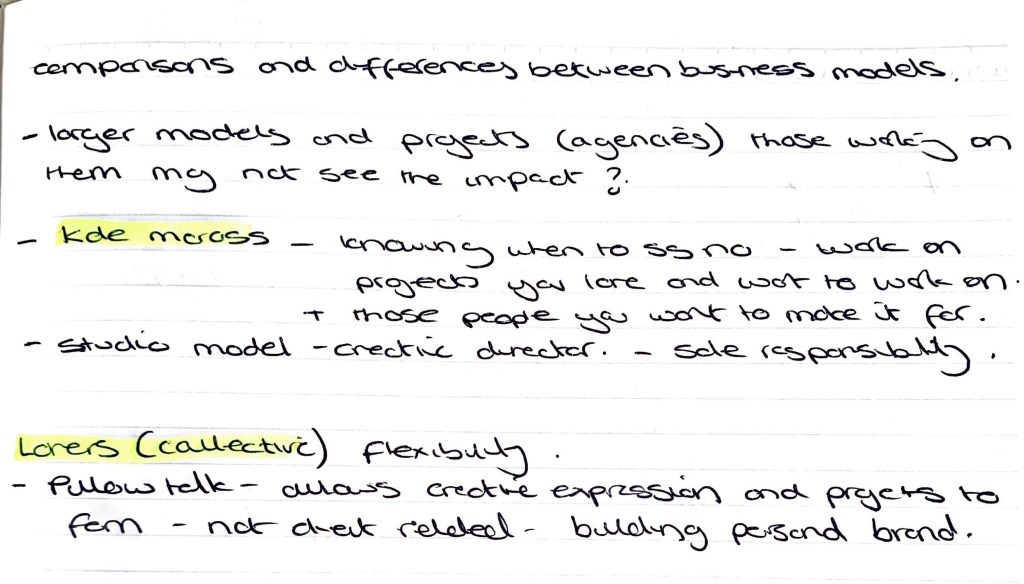 comparisons and differences between business models.
- larger models and projects (agencies) those working on
them may not see the impact ?.
- Kate moross - knowing when to say no - work on
projects you love and want to work on.
+ those people you want to make it for.
- studio model - creative director. - sole responsibility.
Lovers (collective) flexibility.
- Pillow talk - allows creative expression and projects to
form - not client related - building personal brand.